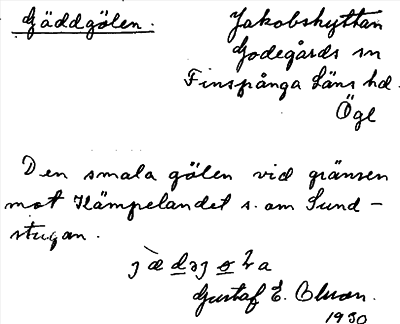 Gäddgölen.
Jakobshyttan
Godegårds sn
Finspånga läns hd.
Ögl
Den smala gölen vid gränsen
mot Kämpelandet s. om Sund-
stugan.
Gustaf E. Olsson.
1930